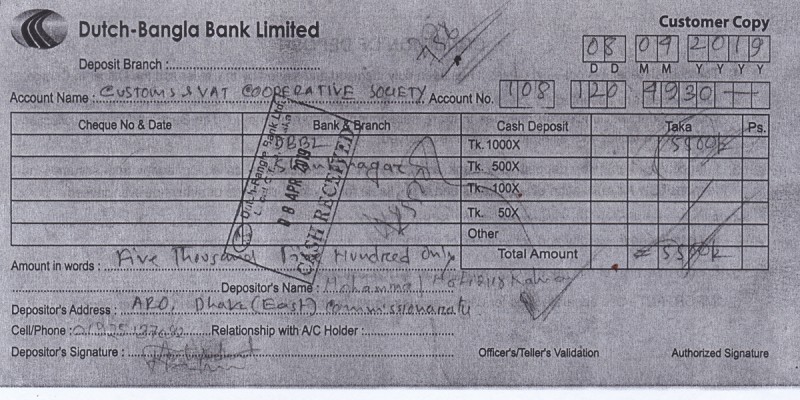 Dutch-Bangla Bank Limited
Customer Copy
Deposit Branch :
08 04 2019
D D M M Y Y Y Y
Account Name : CUSTOMS & VAT COOPERATIVE SOCIETY Account No. 108 120
Cheque No & Date Bank & Branch Cash Deposit Taka Ps.
DBBL Tk. 1000X
Tk. 500X
Tk. 100X
Tk. 50X
Other
Total Amount
Dutch-Bangla Bank Ltd.
08 APR 2019
CASH RECEIVED
Amount in words : Five Thousand Five Hundred Only
Depositor's Name : Mohammad
Depositor's Address : ARO, Dhaka (East) Commissionarate
Cell/Phone : Relationship with A/C Holder :
Depositor's Signature : Officer's/Teller's Validation Authorized Signature